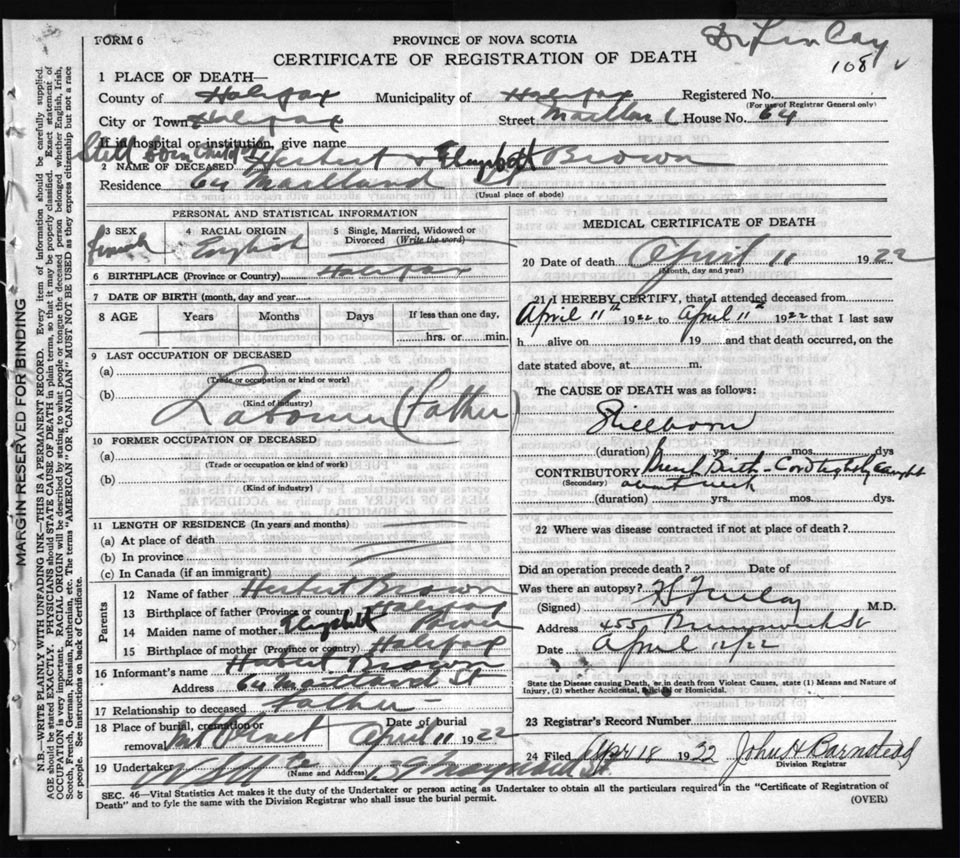 FORM 6
PROVINCE OF NOVA SCOTIA
CERTIFICATE OF REGISTRATION OF DEATH
Dr Finlay
108
1 PLACE OF DEATH—
County of Halifax Municipality of Halifax Registered No.
(For use of Registrar General only)
City or Town Halifax Street Maitland House No. 64
If in hospital or institution, give name
Still born child of
2 NAME OF DECEASED Herbert & Elizabeth Brown
Residence 64 Maitland St
(Usual place of abode)
PERSONAL AND STATISTICAL INFORMATION
3 SEX 4 RACIAL ORIGIN 5 Single, Married, Widowed or Divorced (Write the word)
female English
6 BIRTHPLACE (Province or Country) Halifax
7 DATE OF BIRTH (month, day and year)
8 AGE Years Months Days If less than one day, hrs. or min.
9 LAST OCCUPATION OF DECEASED
(a)
(Trade or occupation or kind or work)
(b)
(Kind of industry)
Labourer (father)
10 FORMER OCCUPATION OF DECEASED
(a)
(Trade or occupation or kind of work)
(b)
(Kind of industry)
11 LENGTH OF RESIDENCE (In years and months)
(a) At place of death
(b) In province
(c) In Canada (if an immigrant)
Parents
12 Name of father Herbert Brown
13 Birthplace of father (Province or country) Halifax
14 Maiden name of mother Elizabeth
15 Birthplace of mother (Province or country) Halifax
16 Informant's name Herbert Brown
Address 64 Maitland St
17 Relationship to deceased father
18 Place of burial, cremation or removal Date of burial April 11 1922
19 Undertaker
(Name and Address) Maynard St
MEDICAL CERTIFICATE OF DEATH
20 Date of death April 11 1922
(Month, day and year)
21 I HEREBY CERTIFY, that I attended deceased from
April 11th 1922 to April 11th 1922 that I last saw
h alive on 19 and that death occurred, on the
date stated above, at m.
The CAUSE OF DEATH was as follows:
Stillborn
(duration) yrs. mos. dys
CONTRIBUTORY Breech Birth - Cord tightly caught
(Secondary) around neck
(duration) yrs. mos. dys.
22 Where was disease contracted if not at place of death?
Did an operation precede death? Date of
Was there an autopsy?
(Signed) Finlay M.D.
Address 455 Brunswick St
Date April 12/22
State the Disease causing Death, or in death from Violent Causes, state (1) Means and Nature of
Injury, (2) whether Accidental, Suicidal or Homicidal.
23 Registrar's Record Number
24 Filed Apr 18 1922 John H Barnstead
Division Registrar
SEC. 46—Vital Statistics Act makes it the duty of the Undertaker or person acting as Undertaker to obtain all the particulars required in the "Certificate of Registration of
Death" and to fyle the same with the Division Registrar who shall issue the burial permit.
(OVER)
MARGIN RESERVED FOR BINDING
N.B.—WRITE PLAINLY WITH UNFADING INK—THIS IS A PERMANENT RECORD. Every item of information should be carefully supplied.
AGE should be stated EXACTLY. PHYSICIANS should STATE CAUSE OF DEATH in plain terms, so that it may be properly classified. Exact statement of
OCCUPATION is very important. RACIAL ORIGIN will be described by stating to what people or tongue the deceased person belonged whether English, Irish,
Scotch, French, German, Russian, Ruthenian, etc. The terms "AMERICAN" OR "CANADIAN" MUST NOT BE USED as they express citizenship but not a race
or people. See instructions on back of Certificate.